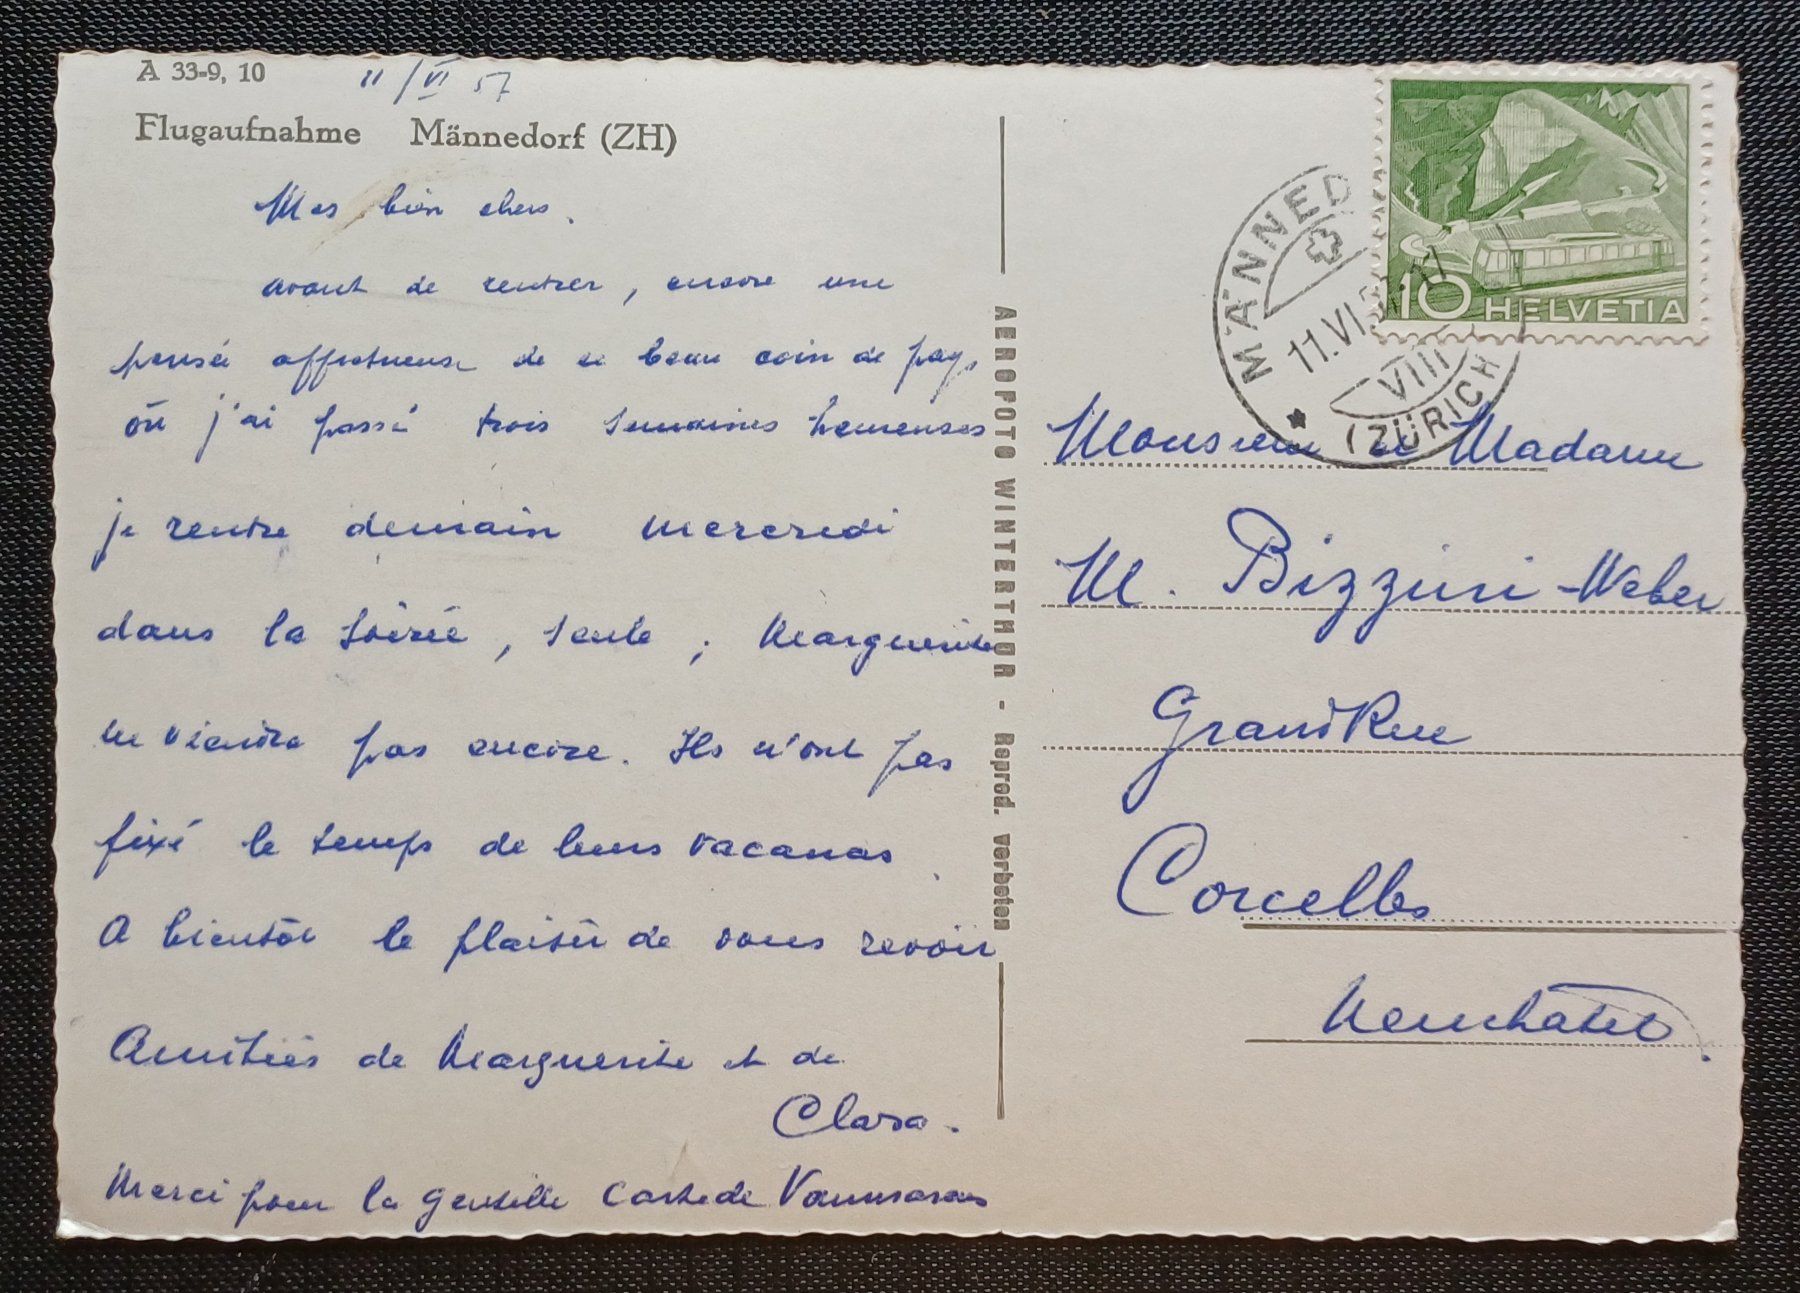 A 33-9, 10
11/VI 57
Flugaufnahme Männedorf (ZH)
Mes bien chers.
avant de rentrer, encore une
pensée affectueuse de ce beau coin de pays
où j'ai passé trois semaines heureuses
je rentre demain mercredi
dans la soirée, seule; Marguerite
ne viendra pas encore. Ils n'ont pas
fixé le temps de leurs vacances.
A bientôt le plaisir de vous revoir
Amitiés de Marguerite et de
Clara.
Merci pour la gentille carte de Vaumarcus
AEROFOTO WINTERTHUR - Reprod. verboten
HELVETIA
10
MÄNNED
11.VI.5
VIII
(ZÜRICH
Monsieur et Madame
M. Bizzini-Weber
Grand Rue
Corcelles
Neuchâtel.